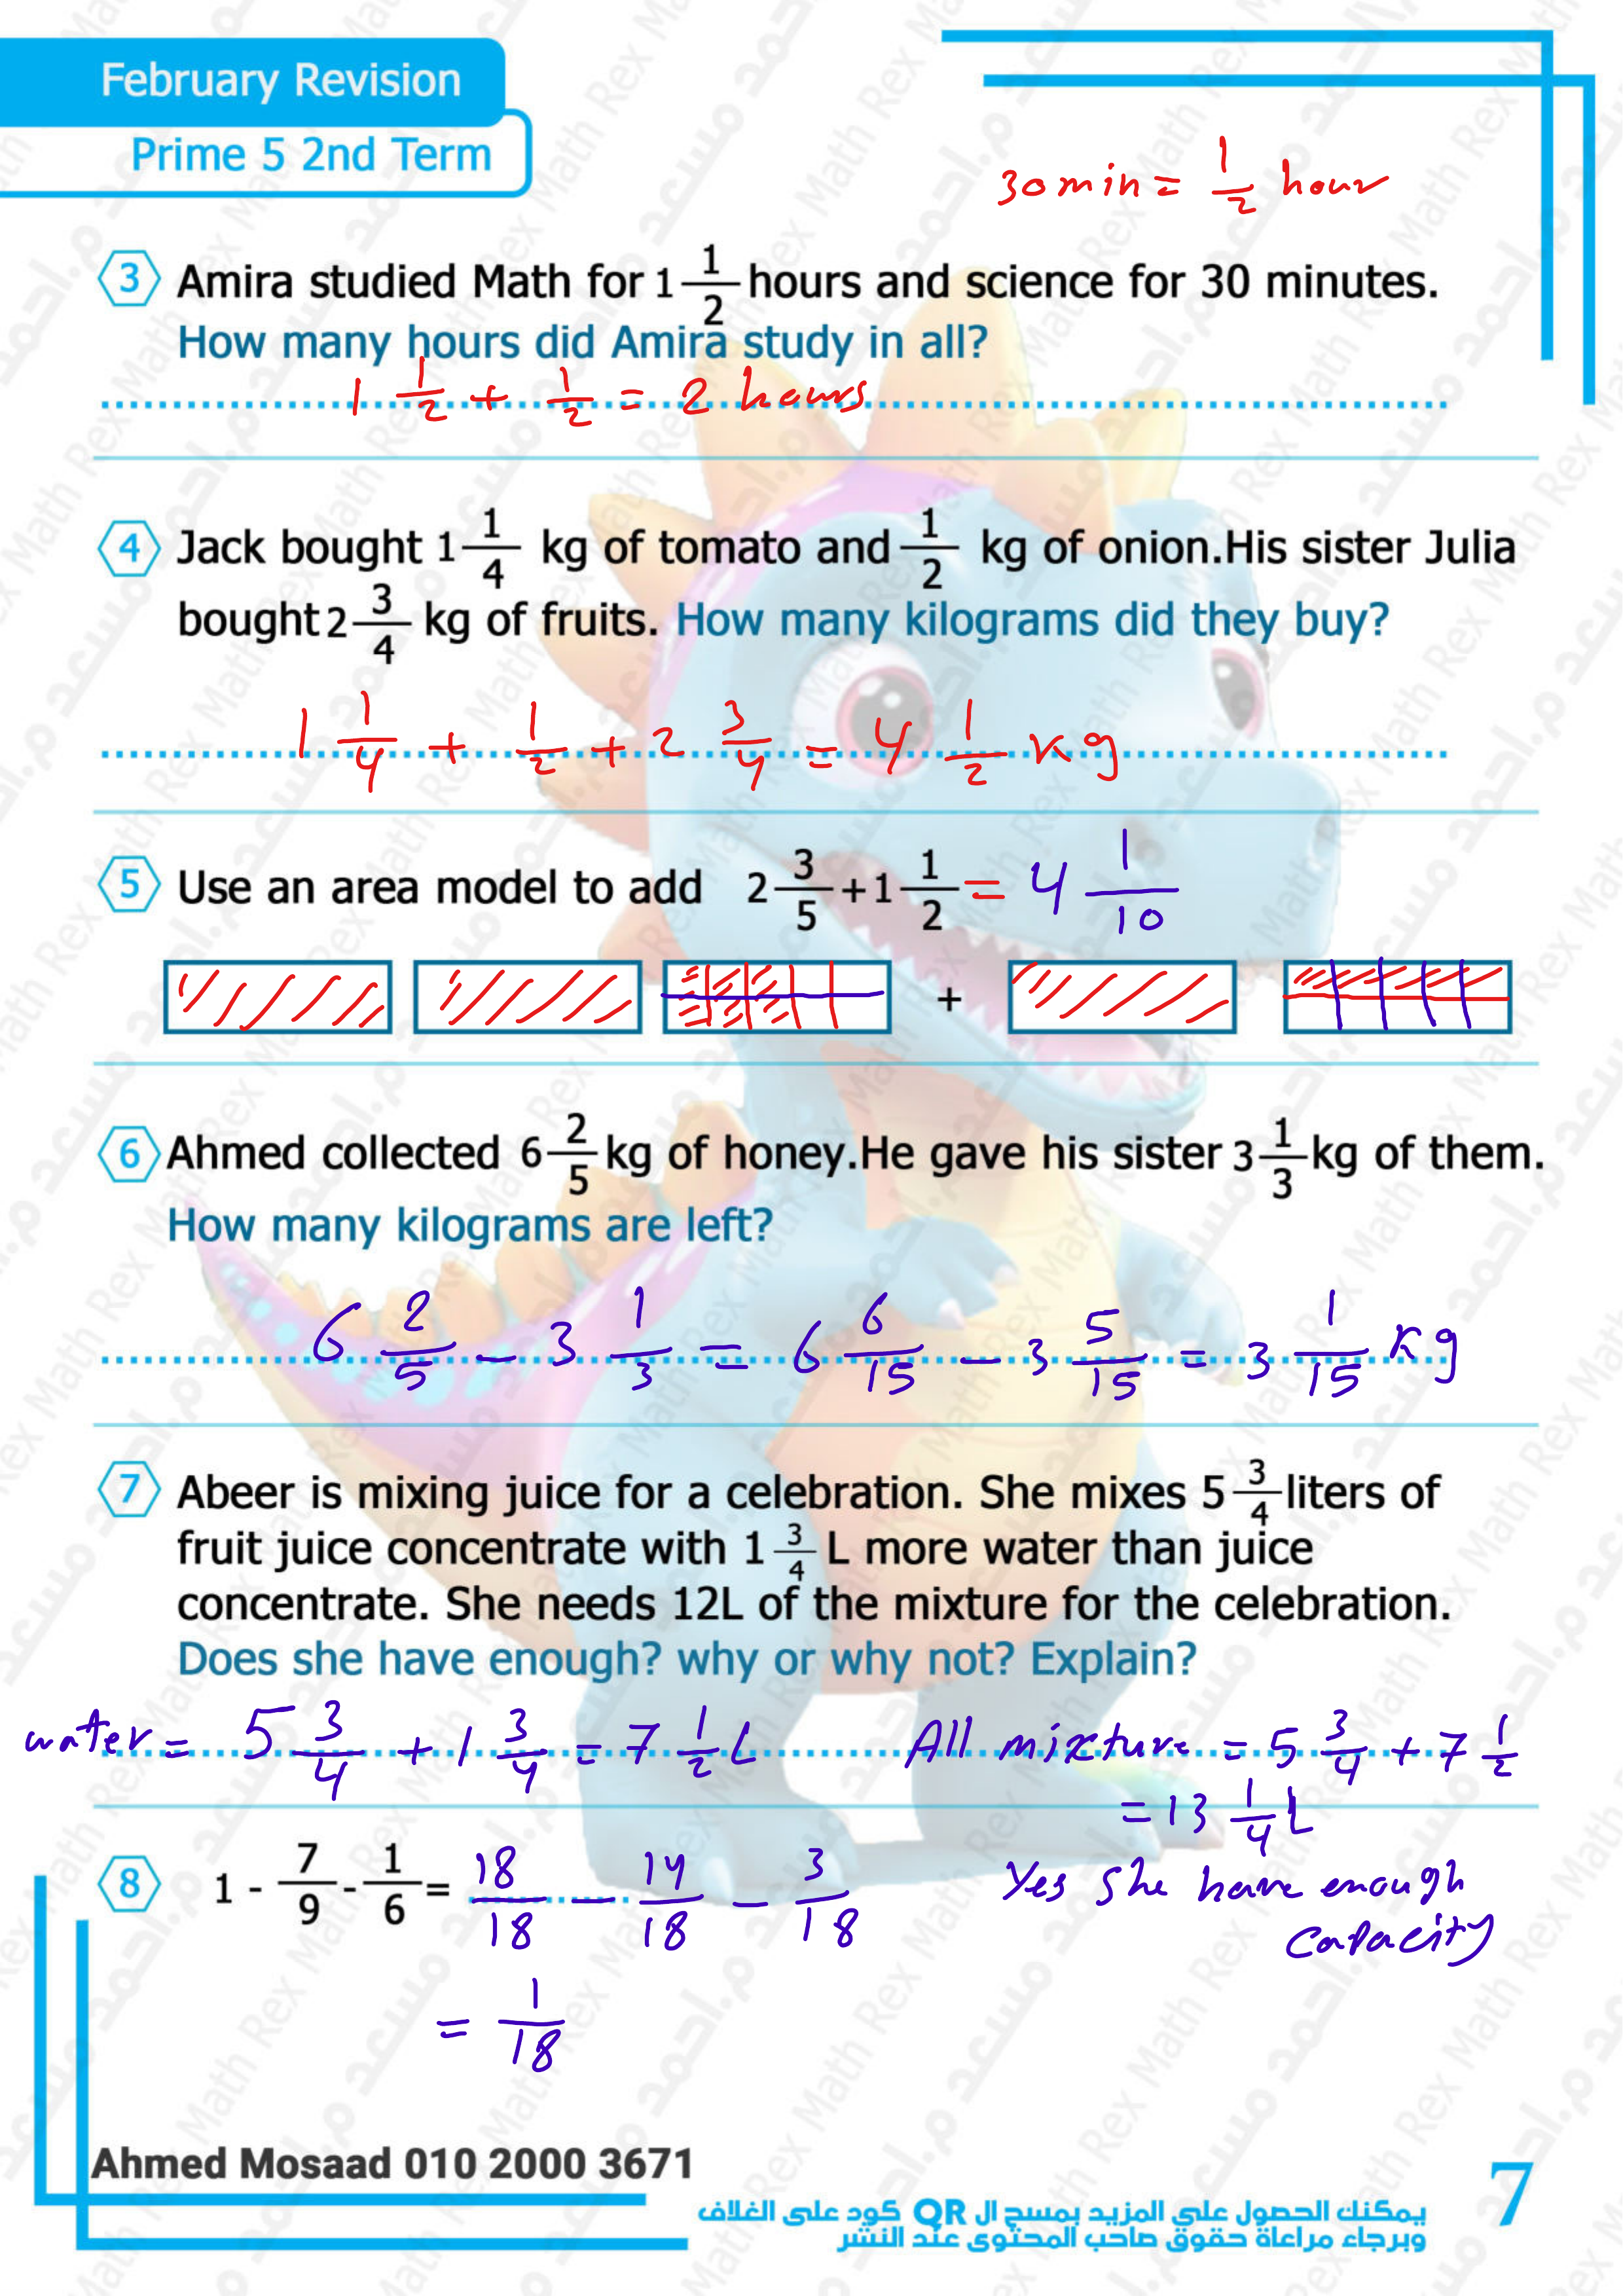 February Revision
Prime 5 2nd Term
30 min = 1/2 hour
3 Amira studied Math for 1 1/2 hours and science for 30 minutes.
How many hours did Amira study in all?
1 1/2 + 1/2 = 2 hours
4 Jack bought 1 1/4 kg of tomato and 1/2 kg of onion.His sister Julia
bought 2 3/4 kg of fruits. How many kilograms did they buy?
1 1/4 + 1/2 + 2 3/4 = 4 1/2 kg
5 Use an area model to add 2 3/5 + 1 1/2 = 4 1/10
+
6 Ahmed collected 6 2/5 kg of honey.He gave his sister 3 1/3 kg of them.
How many kilograms are left?
6 2/5 - 3 1/3 = 6 6/15 - 3 5/15 = 3 1/15 kg
7 Abeer is mixing juice for a celebration. She mixes 5 3/4 liters of
fruit juice concentrate with 1 3/4 L more water than juice
concentrate. She needs 12L of the mixture for the celebration.
Does she have enough? why or why not? Explain?
water = 5 3/4 + 1 3/4 = 7 1/2 L
All mixture = 5 3/4 + 7 1/2
= 13 1/4 L
Yes she have enough
capacity
8 1 - 7/9 - 1/6 = 18/18 - 14/18 - 3/18
= 1/18
Ahmed Mosaad 010 2000 3671
يمكنك الحصول على المزيد بمسح ال QR كود على الغلاف
وبرجاء مراعاة حقوق صاحب المحتوى عند النشر
7
Math Rex م.احمد مسعد